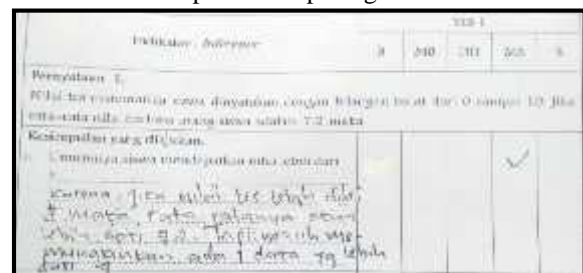 TES I
Indikator : Inference
B MB DD MS S
Pernyataan 1.
Nilai tes matematika siswa dinyatakan dengan bilangan bulat dari 0 sampai 10. Jika
rata-rata nilai tes lima orang siswa adalah 7,2 maka
Kesimpulan yang diajukan.
siswa mendapatkan nilai lebih dari
Karena Jika nilai tes lebih dari
7 maka rata ratanya akan
lebih dari 7.2. Tapi masih me
mungkinkan ada 1 data yg lebih
dari 7